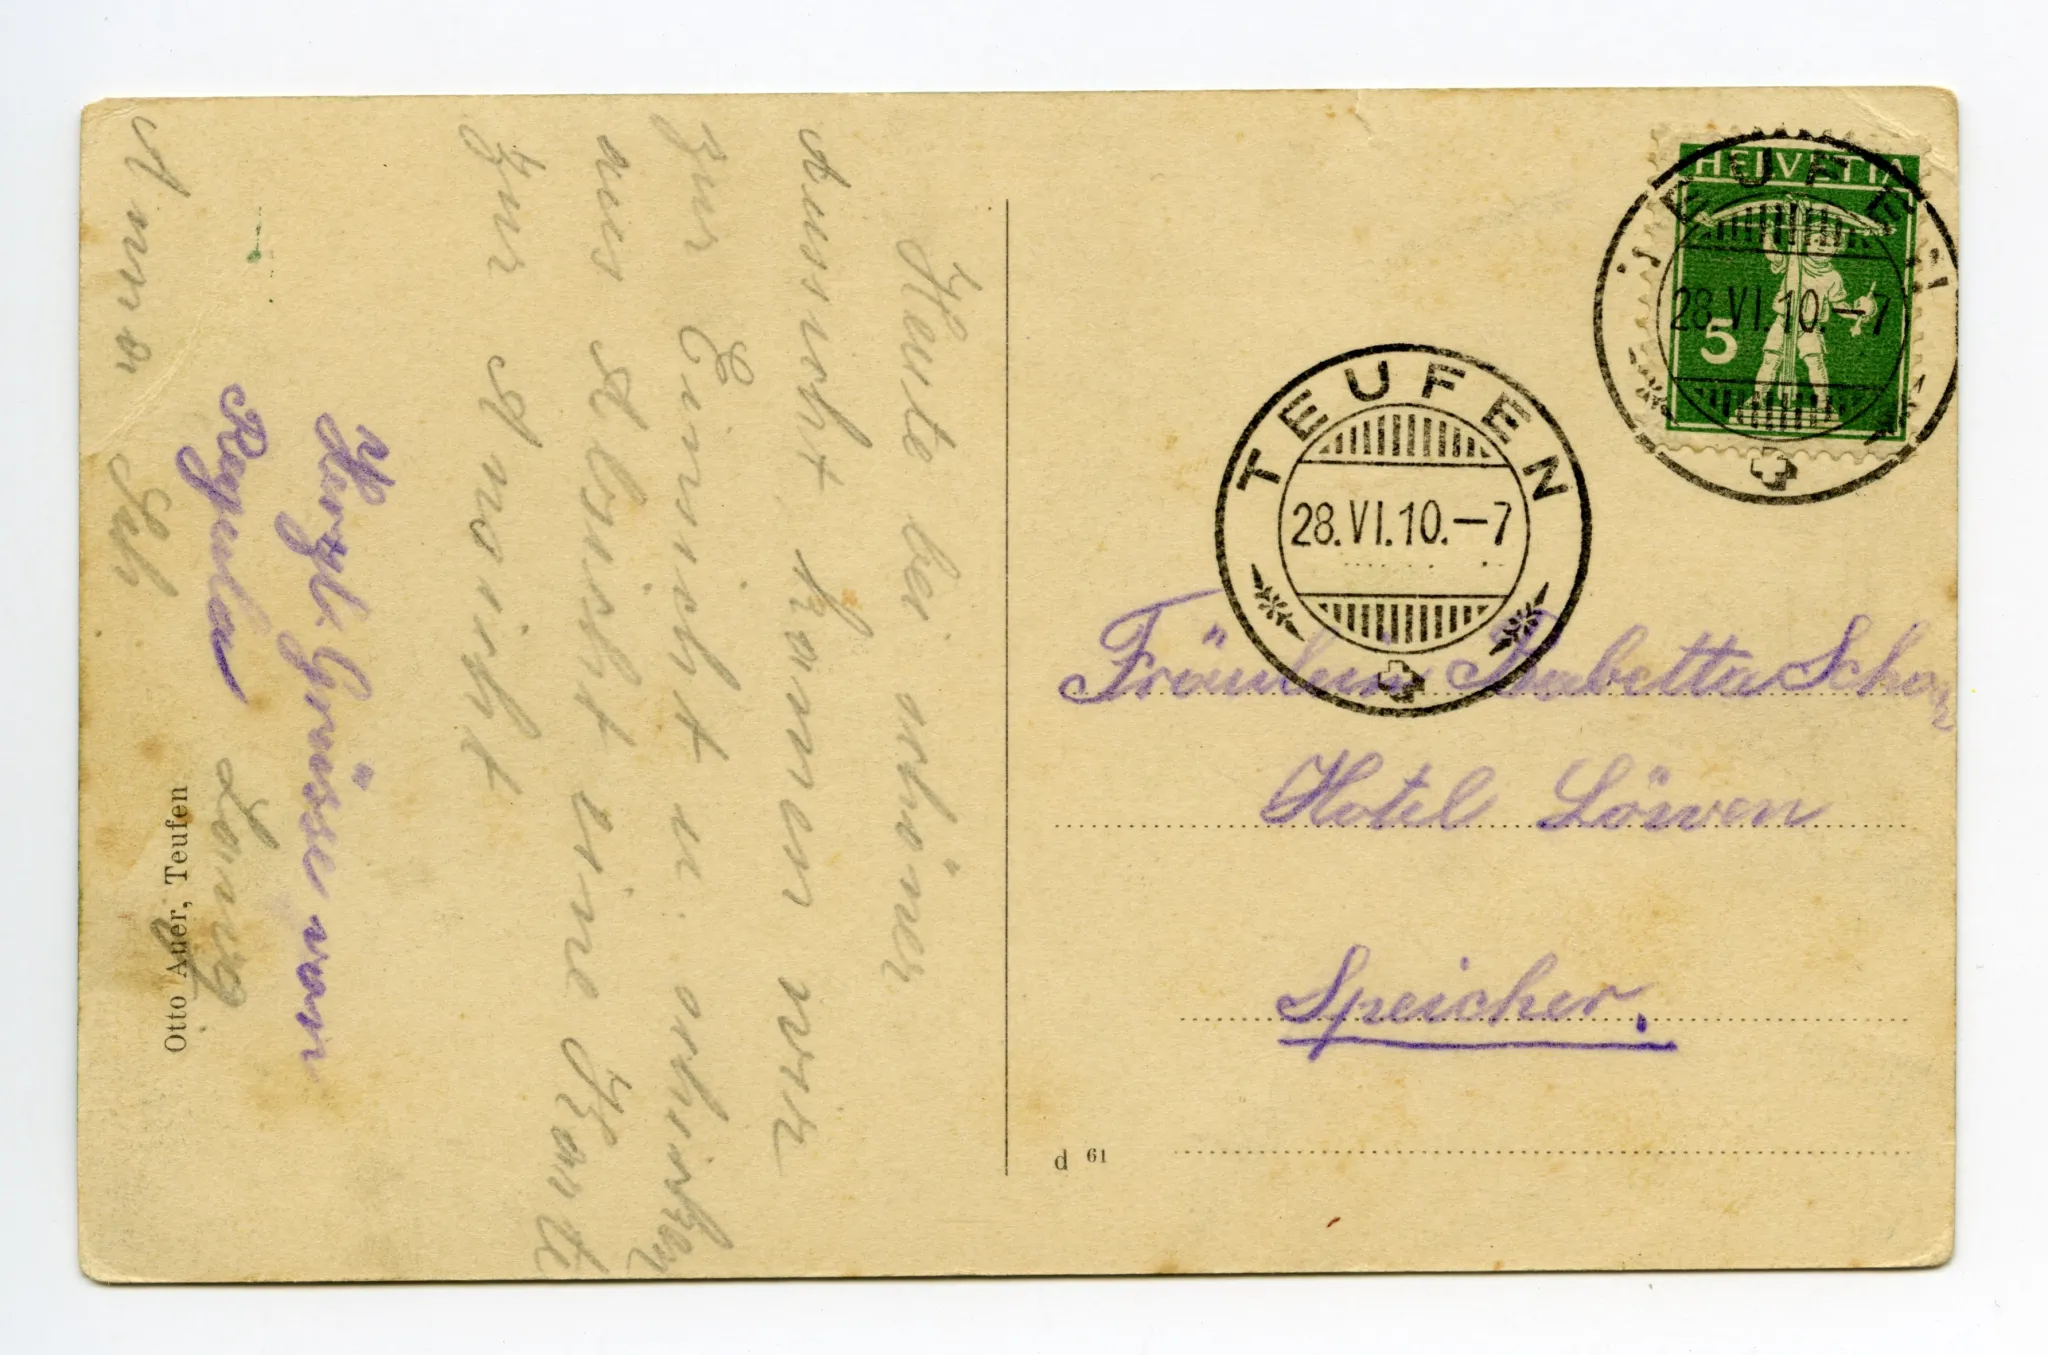 Heute bei schöner
Aussicht, kamen wir
zur Einsicht u. schicken
aus Absicht eine Karte
zur Ansicht
Herzl. Grüsse von
Regula Lanng
Anna
Otto Auer, Teufen
HELVETIA
5
TEUFEN
28.VI.10.–7
TEUFEN
28.VI.10.–7
Fräulein Babetta
Hotel Löwen
Speicher.
d 61